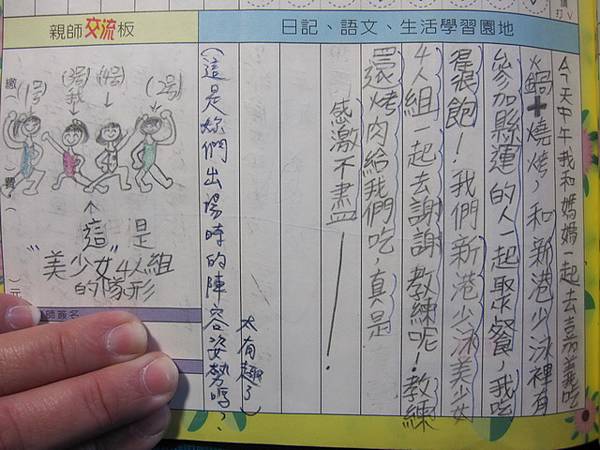 日記、語文、生活學習園地
今天中午我和媽媽一起去嘉義吃
火鍋+燒烤，和新港少泳裡有
參加縣運的人一起聚餐，我吃
得很飽！我們新港少泳美少女
4人組一起去謝謝教練呢！教練
還烤肉給我們吃，真是
感激不盡——！
(這是妳們出場時的陣容姿勢嗎？
太有趣了)
親師交流板
(1號)
(3號)
我
(4號)
(2號)
"這"是
美少女4人組
的隊形
繳
費
元
師簽名